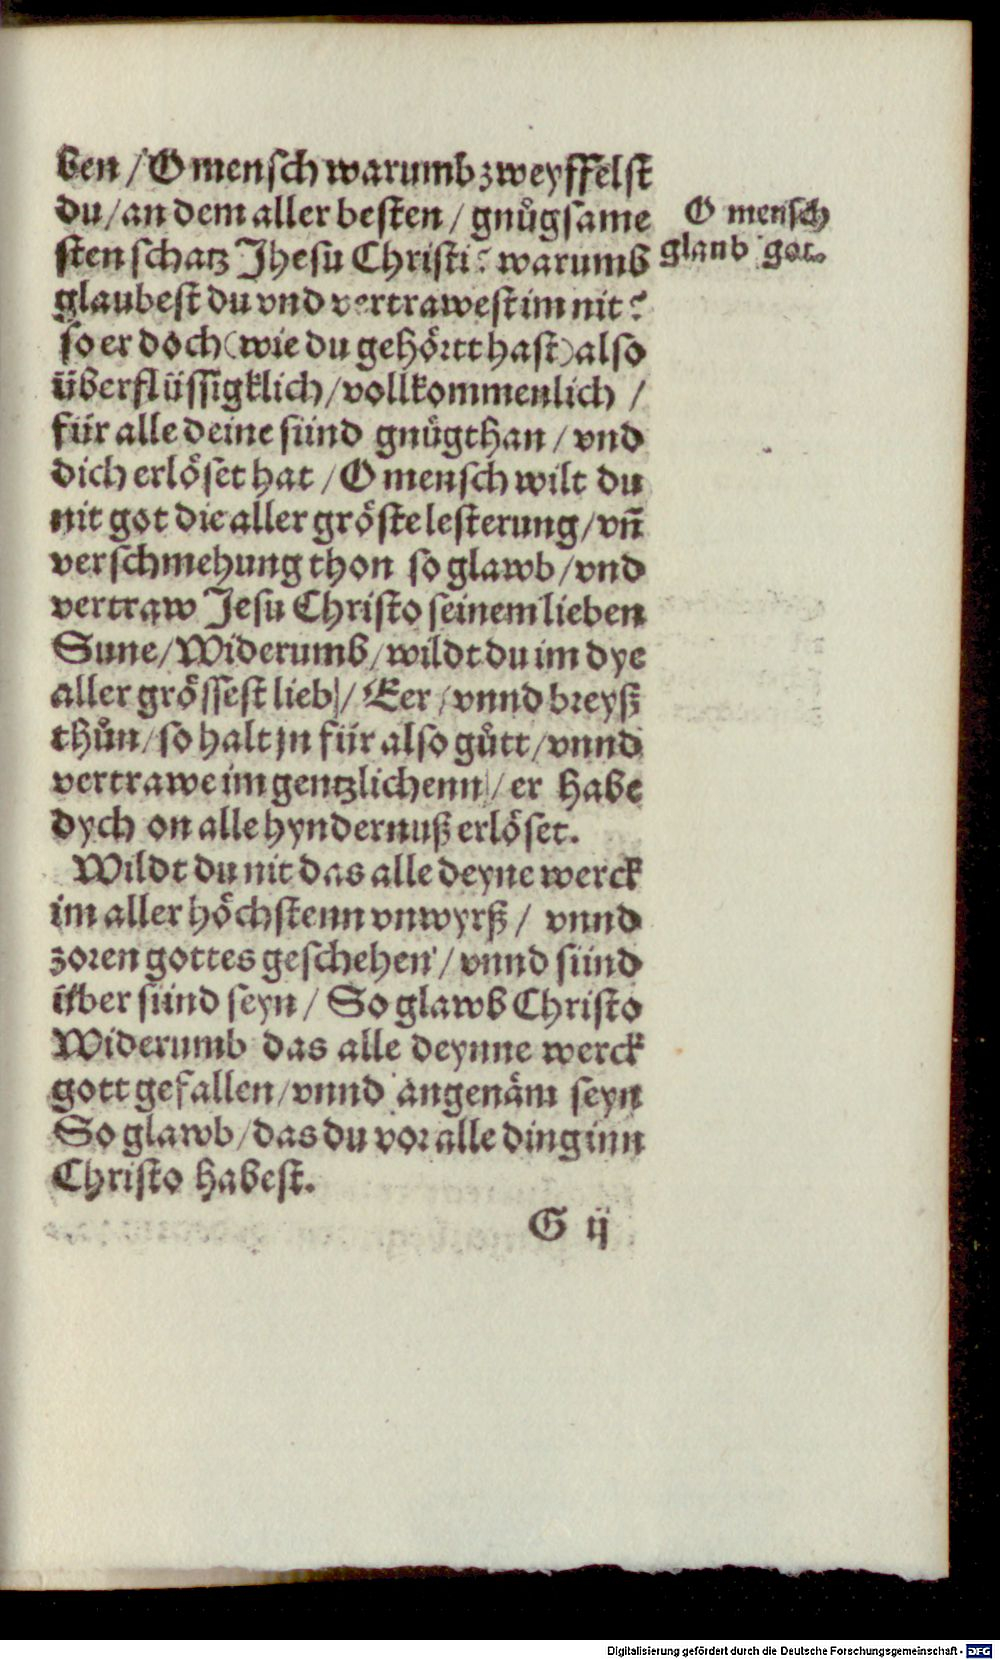 ben / O mensch warumb zweyffelst
du / an dem aller besten / gnůgsame
sten schatz Jhesu Christi? warumb
glaubest du vnd vertrawest im nit?
so er doch (wie du gehörtt hast) also
überflüssigklich / vollkommenlich /
für alle deine sünd gnůgthan / vnd
dich erlöset hat / O mensch wilt du
nit got die aller gröste lesterung / vn̄
verschmehung thon so glawb / vnd
vertraw Jesu Christo seinem lieben
Sune / Widerumb / wildt du im dye
aller grössest lieb / Eer / vnnd breyß
thůn / so halt jn für also gůtt / vnnd
vertrawe im gentzlichenn / er habe
dych on alle hyndernuß erlöset.
Wildt du nit das alle deyne werck
im aller höchstenn vnwyrß / vnnd
zoren gottes geschehen / vnnd sünd
über sünd seyn / So glawb Christo
Widerumb das alle deynne werck
gott gefallen / vnnd angenäm seyn
So glawb / das du vor alle ding inn
Christo habest.
G ij
O mensch
glaub got.
Digitalisierung gefördert durch die Deutsche Forschungsgemeinschaft - DFG